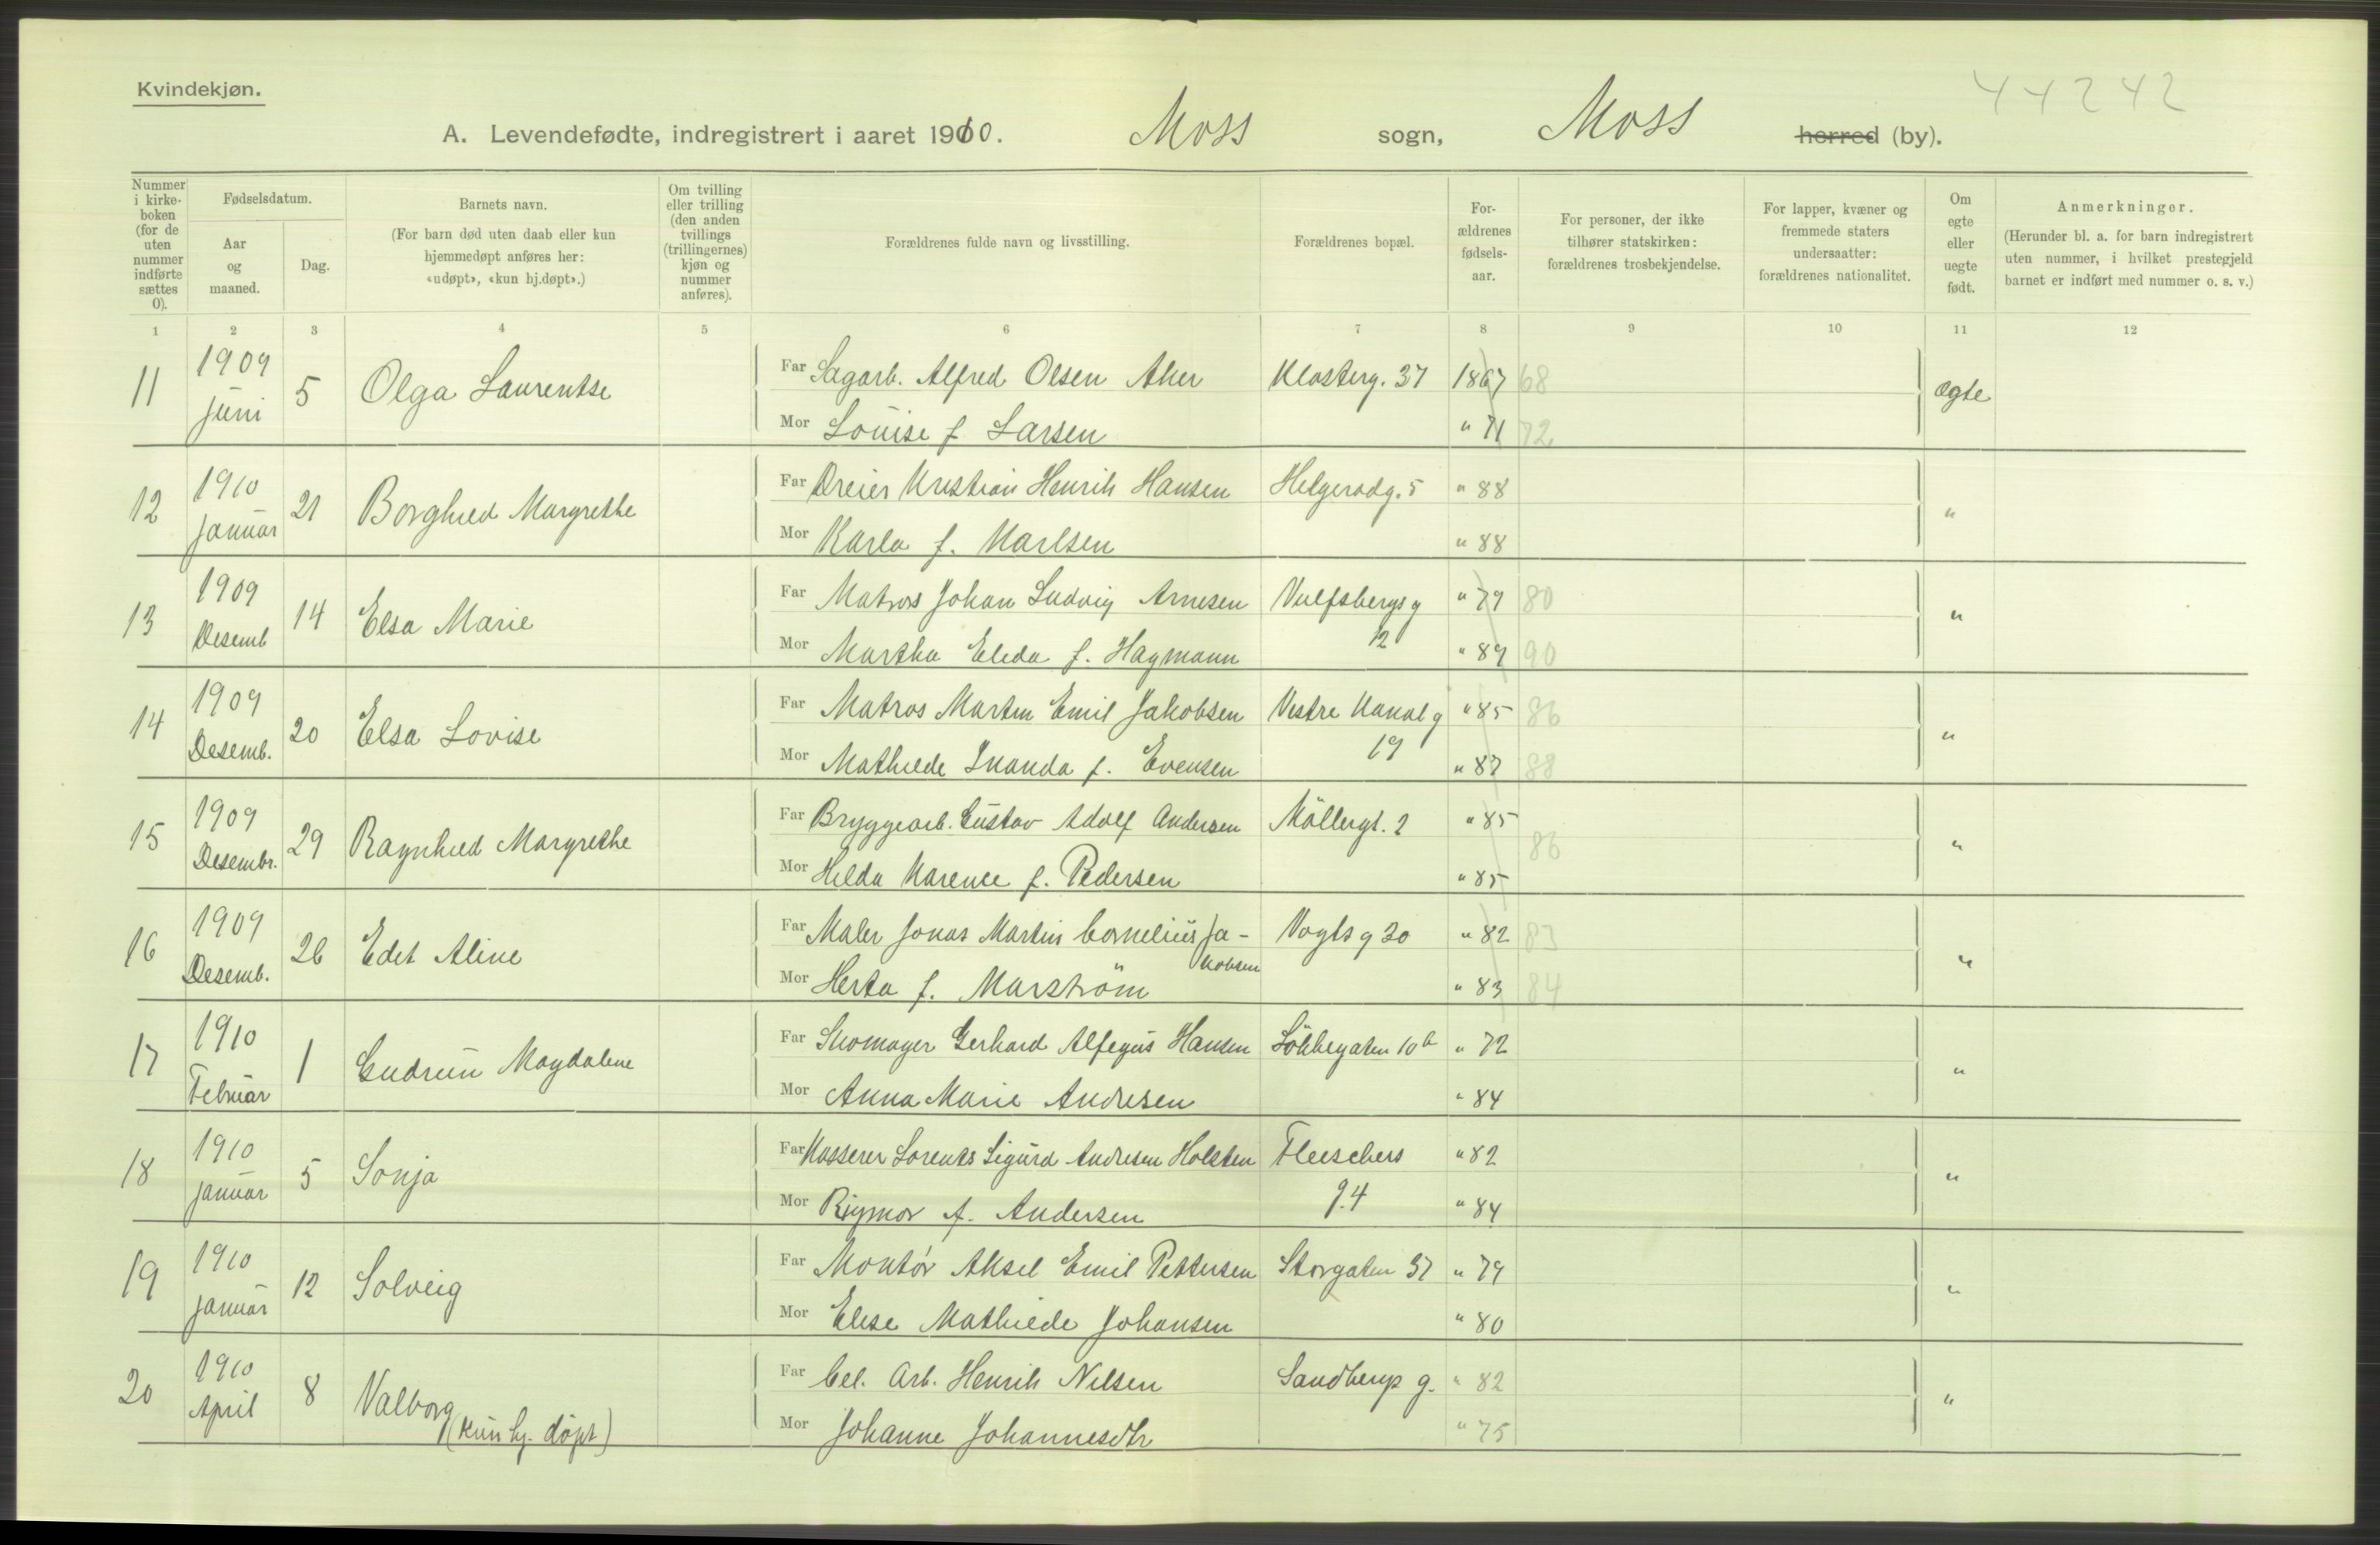 Kvindekjøn.
44242
A. Levendefødte, indregistrert i aaret 1910. Moss sogn, Moss herred (by).
Nummer i kirke-boken (for de uten nummer indførte sættes 0).
Fødselsdatum.
Aar og maaned.
Dag.
Barnets navn.
(For barn død uten daab eller kun hjemmedøpt anføres her: «udøpt», «kun hj.døpt».)
Om tvilling eller trilling (den anden tvillings (trillingernes) kjøn og nummer anføres).
Forældrenes fulde navn og livsstilling.
Forældrenes bopæl.
For-ældrenes fødsels-aar.
For personer, der ikke tilhører statskirken: forældrenes trosbekjendelse.
For lapper, kvæner og fremmede staters undersaatter: forældrenes nationalitet.
Om egte eller uegte født.
Anmerkninger.
(Herunder bl. a. for barn indregistrert uten nummer, i hvilket prestegjeld barnet er indført med nummer o. s. v.)
1 2 3 4 5 6 7 8 9 10 11 12
11 1909 Juni 5 Olga Laurentse Far Sagarb. Alfred Olsen Aker Klosterg. 37 1867 68 ægte
Mor Louise f Larsen " 71 72
12 1910 Januar 21 Borghild Margrethe Far Dreier Kristian Henrik Hansen Helgerodg. 5 " 88 "
Mor Karla f. Karlsen " 88
13 1909 Desemb 14 Elsa Marie Far Matros Johan Ludvig Arnesen Vulfsbergs g " 79 80 "
Mor Martha Elida f. Hagmann 12 " 89 90
14 1909 Desemb. 20 Elsa Lovise Far Matros Martin Emil Jakobsen Vestre Kanal g " 85 86 "
Mor Mathilde Inanda f. Evensen 19 " 87 88
15 1909 Desembr. 29 Ragnhild Margrethe Far Bryggearb. Gustav Adolf Andersen Möllergt. 2 " 85 86 "
Mor Hilda Karence f. Pedersen " 85
16 1909 Desemb. 26 Edit Aline Far Maler Jonas Martin Cornelius Ja- Vogts g 30 " 82 83 "
kobsen
Mor Herta f. Marström " 83 84
17 1910 Februar 1 Gudrun Magdalene Far Skomager Gerhard Alfegus Hansen Lökkegaten 10 b " 72 "
Mor Anna Marie Andresen " 84
18 1910 Januar 5 Sonja Far Kasserer Lorents Sigurd Andresen Holsten Fleischers " 82 "
Mor Rigmor f. Andersen g. 4 " 84
19 1910 Januar 12 Solveig Far Montör Aksel Emil Pettersen Storgaten 37 " 79 "
Mor Elise Mathilde Johansen " 80
20 1910 April 8 Valborg Far Cel. Arb. Henrik Nilsen Sandbergs g. " 82 "
(kun hj. döpt) Mor Johanne Johannesdtr " 75